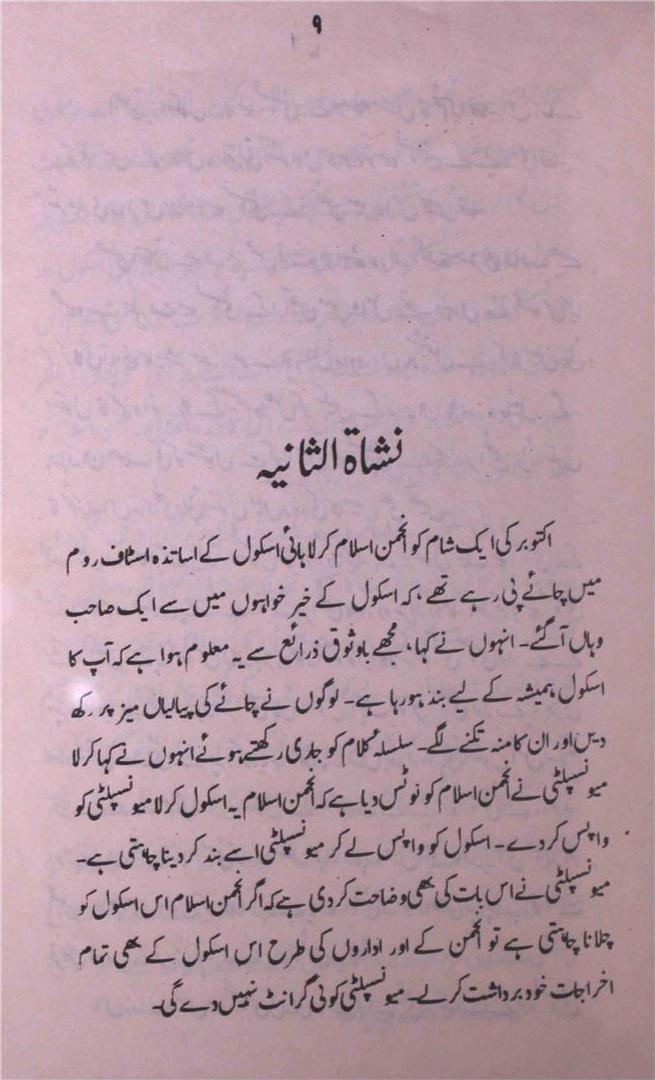 ۹
نشاۃ الثانیہ
اکتوبر کی ایک شام کو انجمن اسلام کرلا ہائی اسکول کے اساتذہ اسٹاف روم
میں چائے پی رہے تھے ، کہ اسکول کے خیر خواہوں میں سے ایک صاحب
وہاں آگئے۔ انہوں نے کہا ، مجھے باوثوق ذرائع سے یہ معلوم ہوا ہے کہ آپ کا
اسکول ہمیشہ کے لیے بند ہو رہا ہے۔ لوگوں نے چائے کی پیالیاں میز پر رکھ
دیں اور ان کا منہ تکنے لگے۔ سلسلۂ کلام کو جاری رکھتے ہوئے انہوں نے کہا کرلا
میونسپلٹی نے انجمن اسلام کو نوٹس دیا ہے کہ انجمن اسلام یہ اسکول کرلا میونسپلٹی کو
واپس کردے۔ اسکول کو واپس لے کر میونسپلٹی اسے بند کر دینا چاہتی ہے۔
میونسپلٹی نے اس بات کی بھی وضاحت کردی ہے کہ اگر انجمن اسلام اس اسکول کو
چلانا چاہتی ہے تو انجمن کے اور اداروں کی طرح اس اسکول کے بھی تمام
اخراجات خود برداشت کرلے۔ میونسپلٹی کوئی گرانٹ نہیں دے گی۔